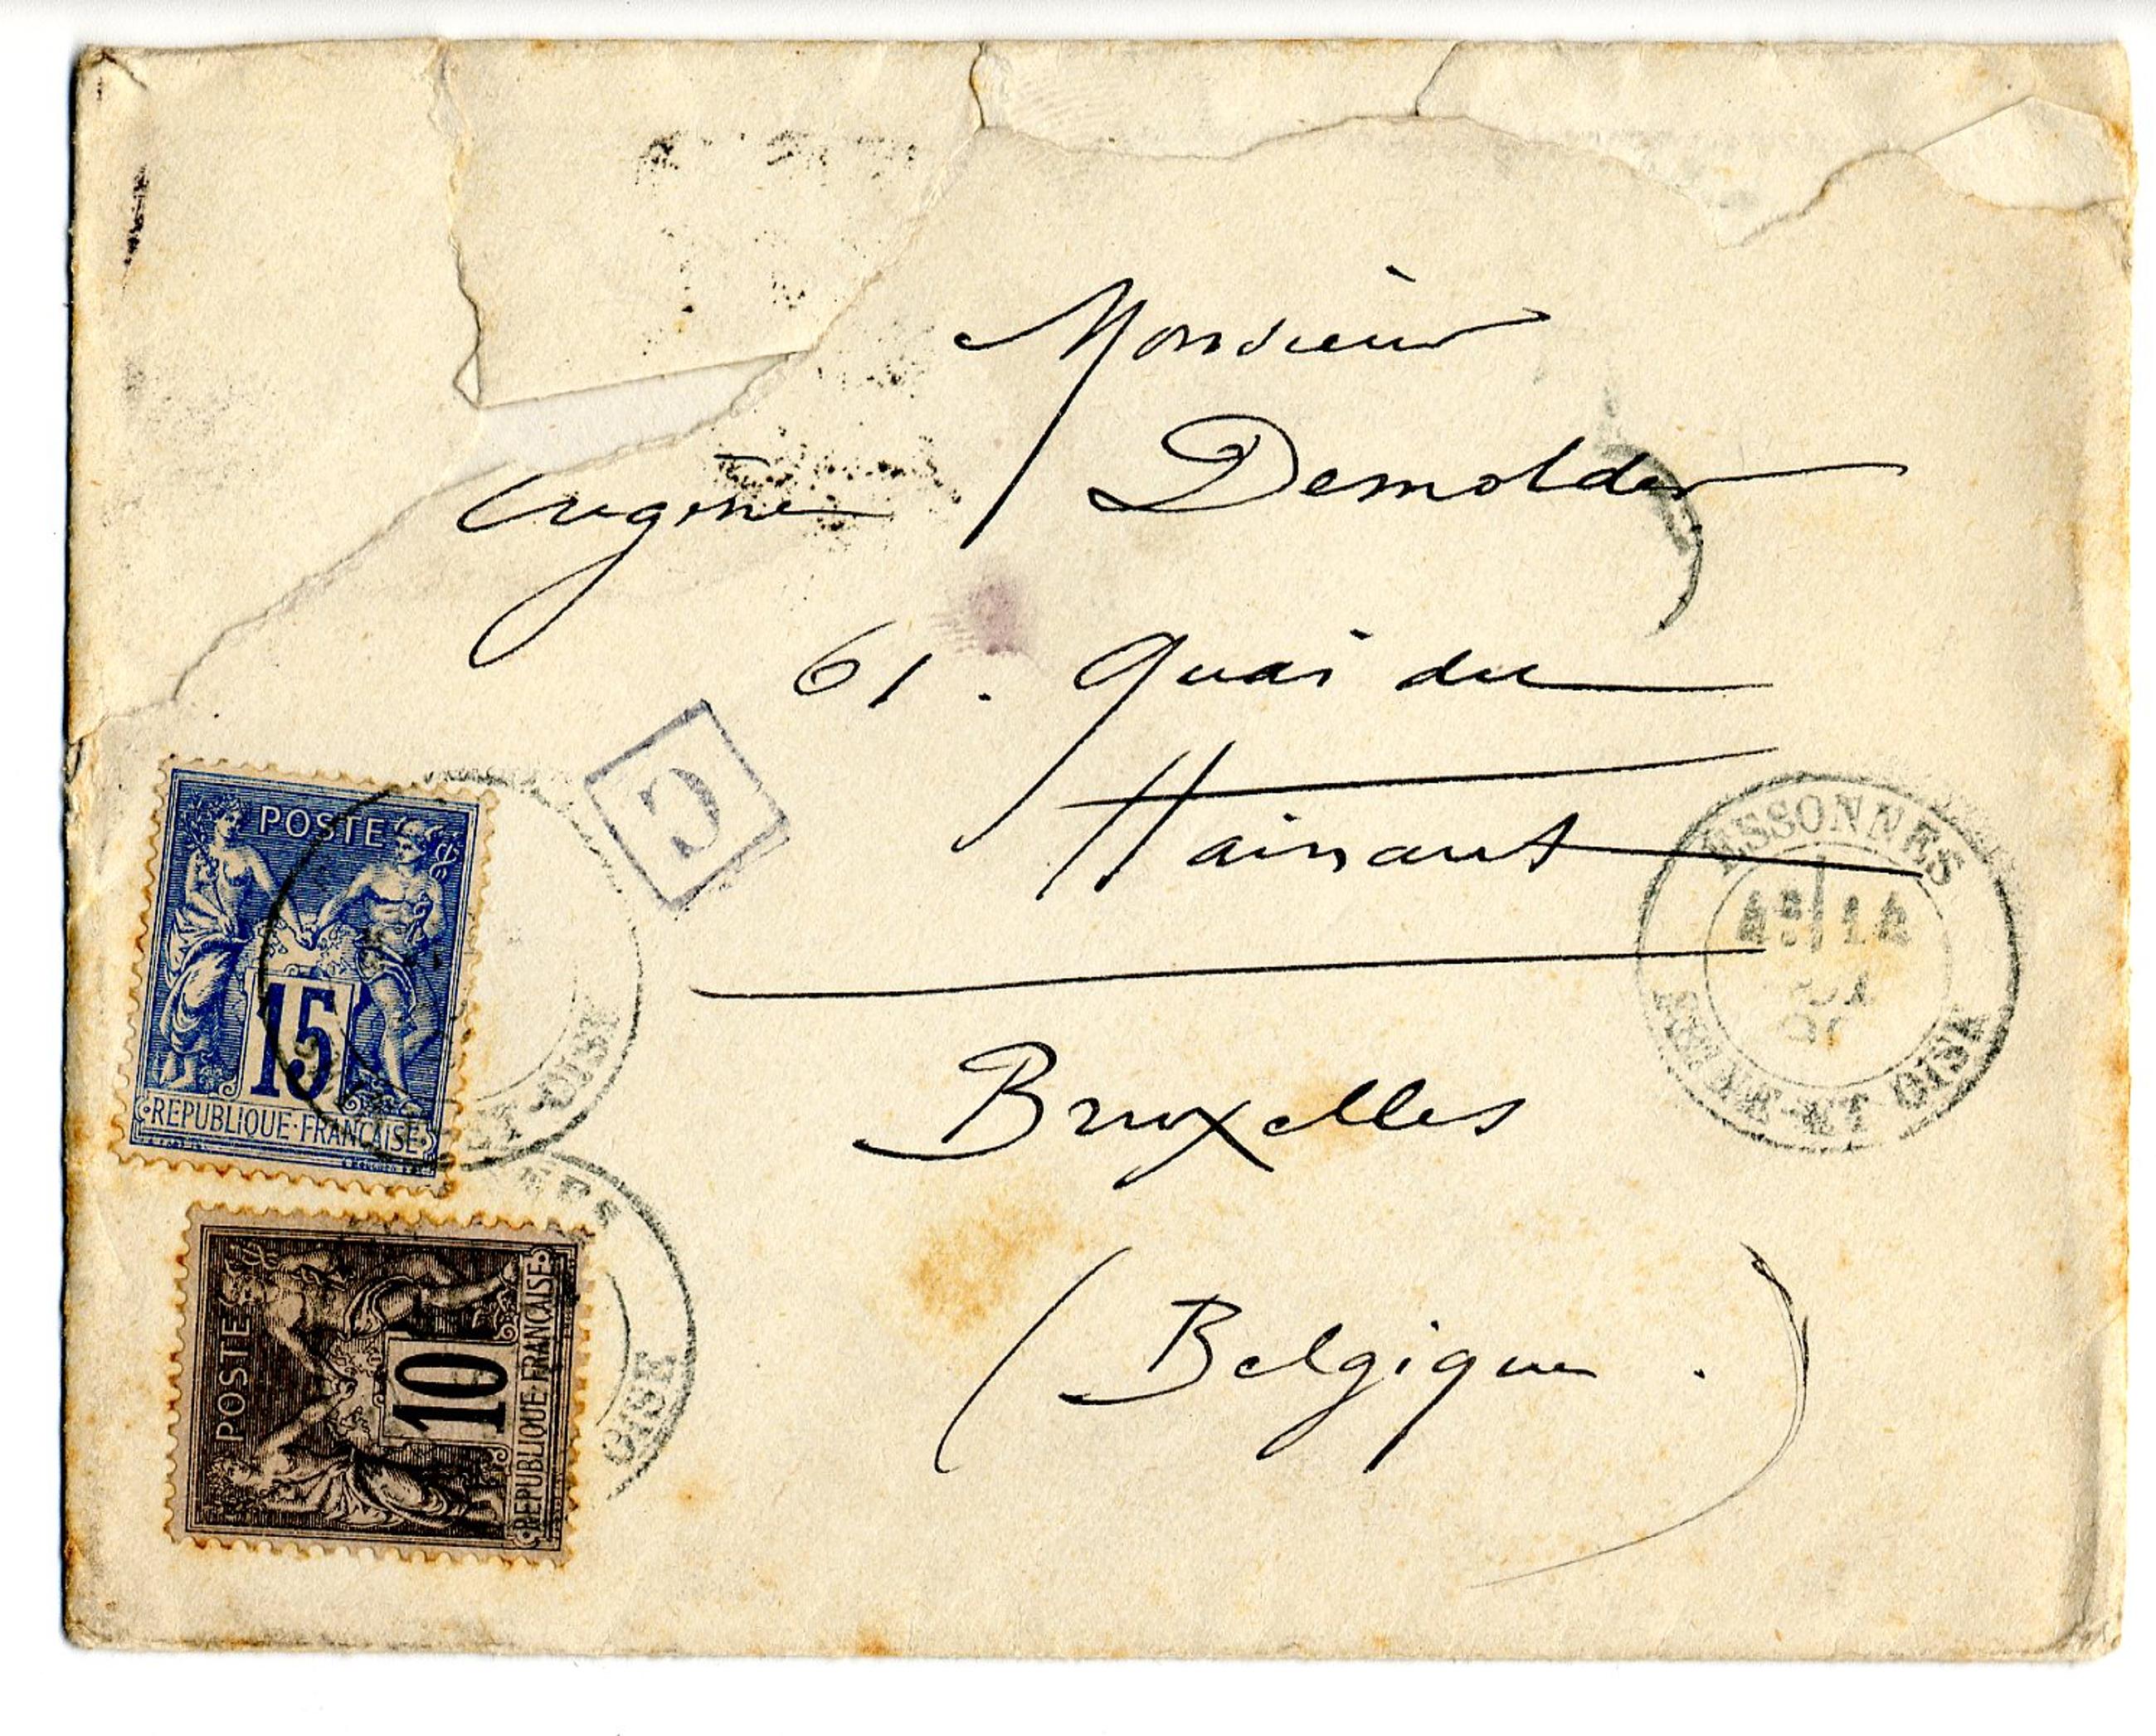 Monsieur
Eugène Demolder
61. Quai du
Hainaut
Bruxelles
(Belgique.)
POSTE
15
REPUBLIQUE·FRANÇAISE
POSTE
10
REPUBLIQUE·FRANÇAISE
ESSONNES
SEINE-ET-OISE
ET-OISE
OISE